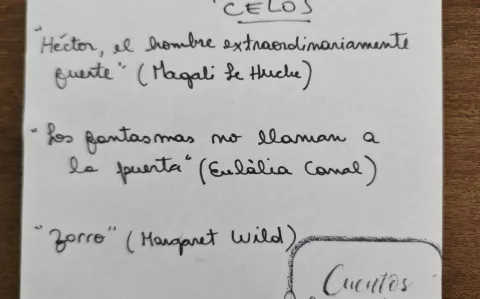 CELOS
"Héctor, el hombre extraordinariamente
fuerte" (Magali Le Huche)
"Los fantasmas no llaman a
la puerta" (Eulàlia Canal)
"Zorro" (Margaret Wild)
Cuentos